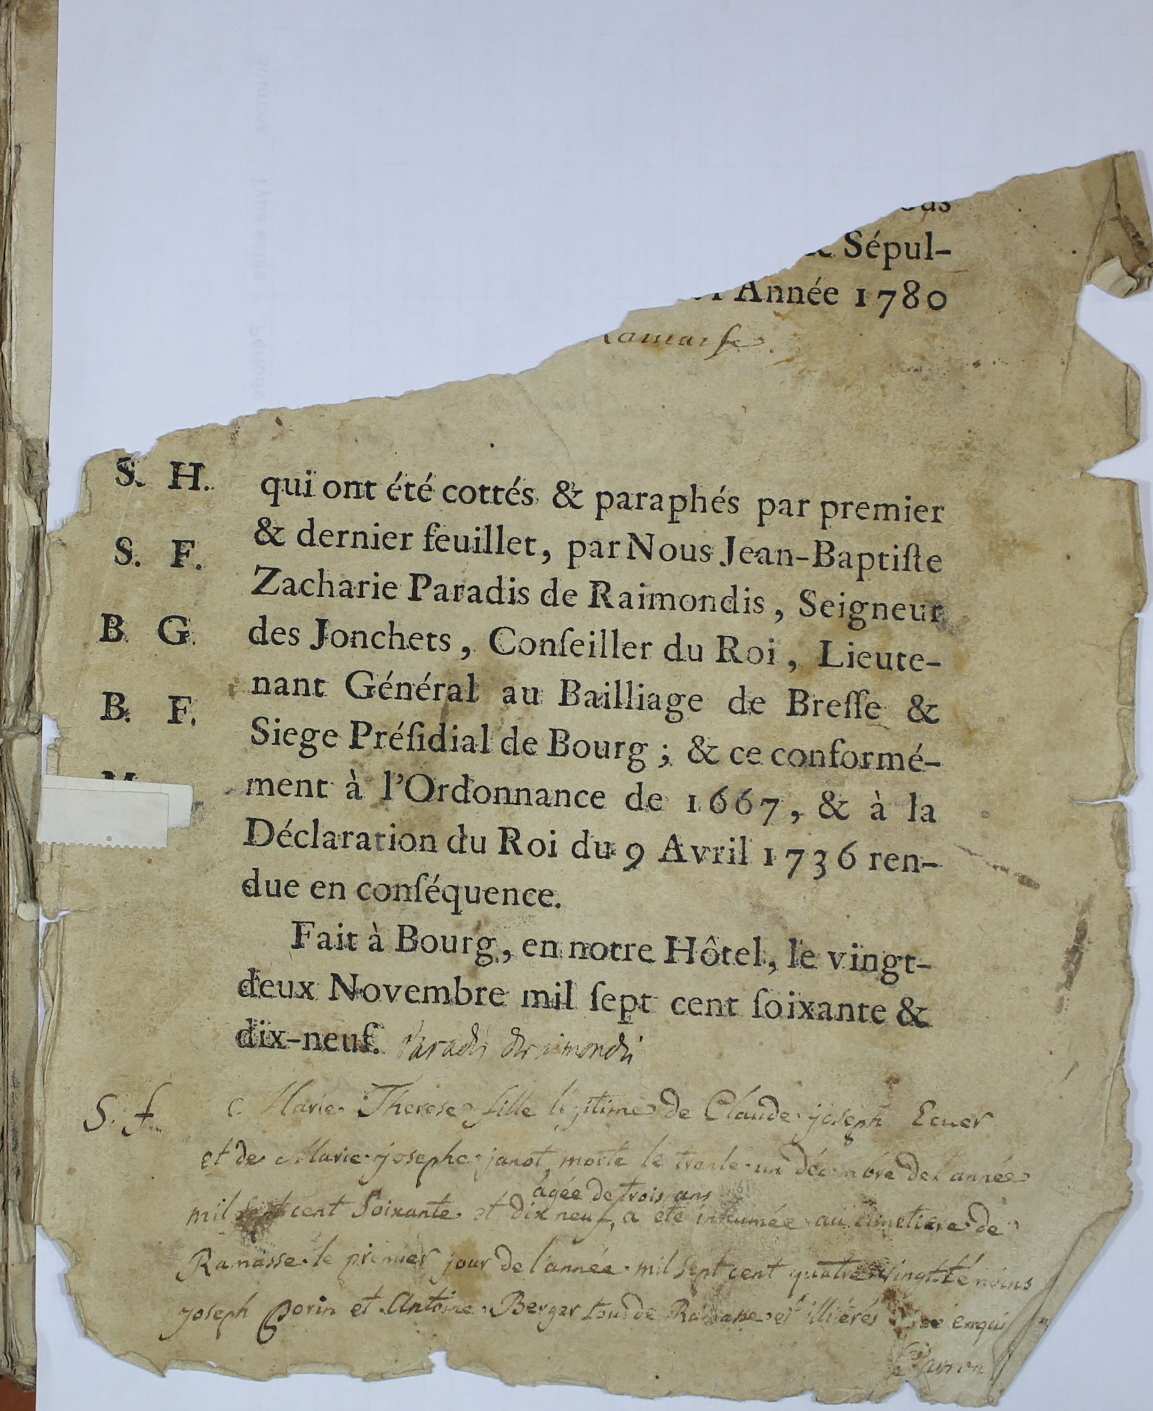 Sépul-
Année 1780
Ramasse.
S. H. qui ont été cottés & paraphés par premier
& dernier feuillet, par Nous Jean-Baptiſte
S. F. Zacharie Paradis de Raimondis, Seigneur
B. G. des Jonchets, Conſeiller du Roi, Lieute-
nant Général au Bailliage de Breſſe &
B. F. Siege Préſidial de Bourg ; & ce conformé-
ment à l'Ordonnance de 1667, & à la
Déclaration du Roi du 9 Avril 1736 ren-
due en conſéquence.
Fait à Bourg, en notre Hôtel, le vingt-
deux Novembre mil ſept cent ſoixante &
dix-neuf. Paradis de raimondis
S. f. Marie Therese fille legitime de Claude joseph Ecuer
et de Marie josephe janot morte le trente un décembre de l'année
âgée de trois ans
mil sept cent soixante et dix neuf, a été inhumée au cimetiere de
Ramasse le premier jour de l'année mil sept cent quatre vingt témoins
joseph et Antoine Berger de illitérés enquis